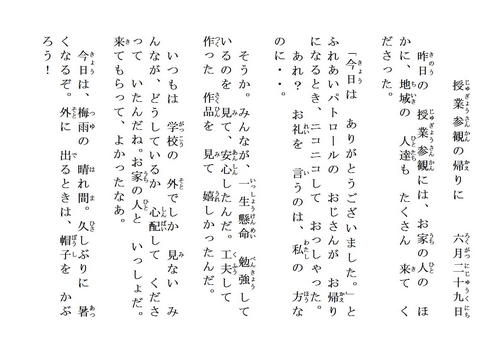 授業参観の帰りに　　六月二十九日
昨日の　授業参観には、お家の人の　ほ
かに、地域の　人達も　たくさん　来て　く
ださった。
「今日は　ありがとうございました。」と
ふれあいパトロールの　おじさんが　お帰り
になるとき、ニコニコして　おっしゃった。
あれ？　お礼を　言うのは、私の　方な
のに・・。
そうか。みんなが、一生懸命　勉強して
いるのを　見て、安心したんだ。工夫して
作った　作品を　見て　嬉しかったんだ。
いつもは　学校の　外でしか　見ない　み
んなが、どうしているか　心配して　くださ
って　いたんだね。お家の人と　いっしょだ。
来てもらって、よかったなあ。
今日は、梅雨の　晴れ間。久しぶりに　暑
くなるぞ。外に　出るときは、帽子を　かぶ
ろう！